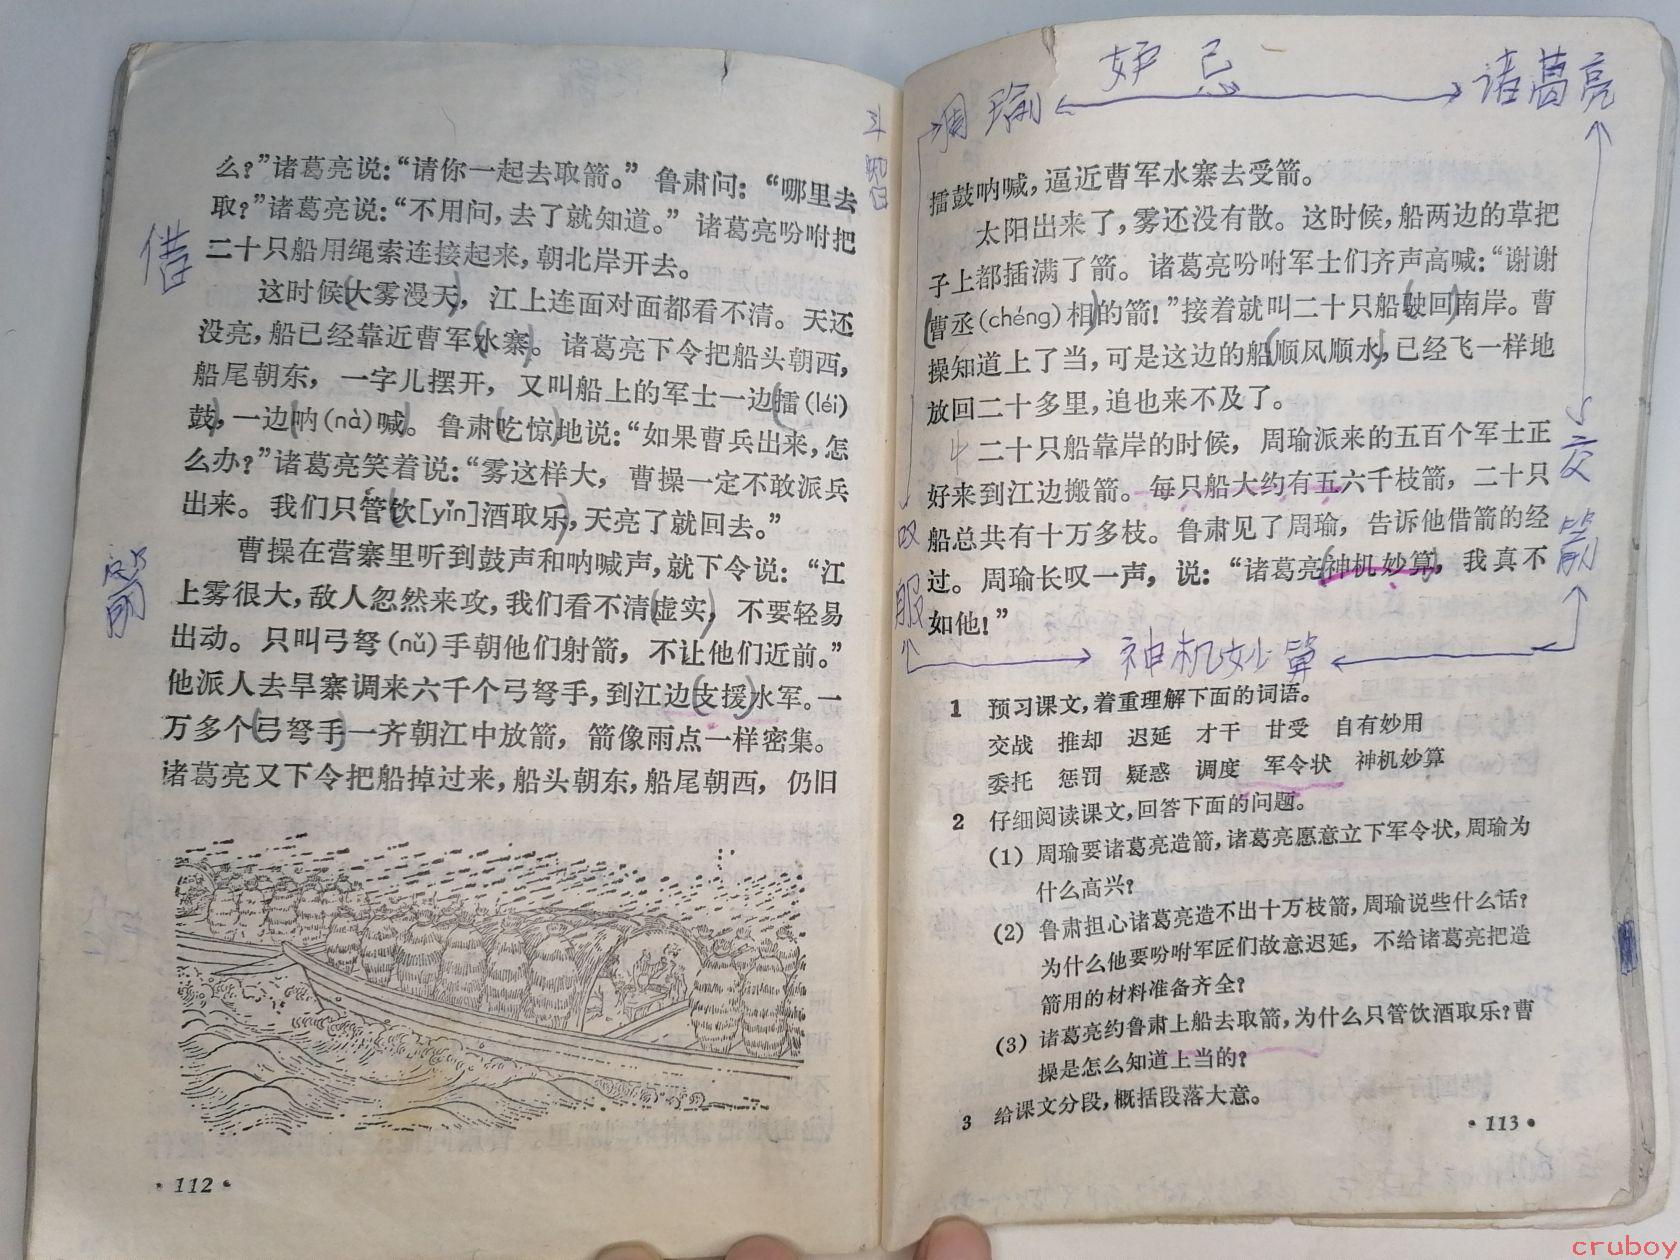 么？”诸葛亮说：“请你一起去取箭。” 鲁肃问：“哪里去
取？”诸葛亮说：“不用问，去了就知道。” 诸葛亮吩咐把
二十只船用绳索连接起来，朝北岸开去。
这时候大雾漫天，江上连面对面都看不清。天还
没亮，船已经靠近曹军水寨。诸葛亮下令把船头朝西，
船尾朝东，一字儿摆开，又叫船上的军士一边擂(léi)
鼓，一边呐(nà)喊。鲁肃吃惊地说：“如果曹兵出来，怎
么办？”诸葛亮笑着说：“雾这样大，曹操一定不敢派兵
出来。我们只管饮[yǐn]酒取乐，天亮了就回去。”
曹操在营寨里听到鼓声和呐喊声，就下令说：“江
上雾很大，敌人忽然来攻，我们看不清虚实，不要轻易
出动。只叫弓弩(nǔ)手朝他们射箭，不让他们近前。”
他派人去旱寨调来六千个弓弩手，到江边支援水军。一
万多个弓弩手一齐朝江中放箭，箭像雨点一样密集。
诸葛亮又下令把船掉过来，船头朝东，船尾朝西，仍旧
借
箭
斗智
·112·
妒忌
周瑜
诸葛亮
擂鼓呐喊，逼近曹军水寨去受箭。
太阳出来了，雾还没有散。这时候，船两边的草把
子上都插满了箭。诸葛亮吩咐军士们齐声高喊：“谢谢
曹丞(chéng)相的箭！”接着就叫二十只船驶回南岸。曹
操知道上了当，可是这边的船顺风顺水，已经飞一样地
放回二十多里，追也来不及了。
二十只船靠岸的时候，周瑜派来的五百个军士正
好来到江边搬箭。每只船大约有五六千枝箭，二十只
船总共有十万多枝。鲁肃见了周瑜，告诉他借箭的经
过。周瑜长叹一声，说：“诸葛亮神机妙算，我真不
如他！”
叹服
交箭
神机妙算
1 预习课文，着重理解下面的词语。
交战 推却 迟延 才干 甘受 自有妙用
委托 惩罚 疑惑 调度 军令状 神机妙算
2 仔细阅读课文，回答下面的问题。
(1) 周瑜要诸葛亮造箭，诸葛亮愿意立下军令状，周瑜为
什么高兴？
(2) 鲁肃担心诸葛亮造不出十万枝箭，周瑜说些什么话？
为什么他要吩咐军匠们故意迟延，不给诸葛亮把造
箭用的材料准备齐全？
(3) 诸葛亮约鲁肃上船去取箭，为什么只管饮酒取乐？曹
操是怎么知道上当的？
3 给课文分段，概括段落大意。
·113·
cruboy